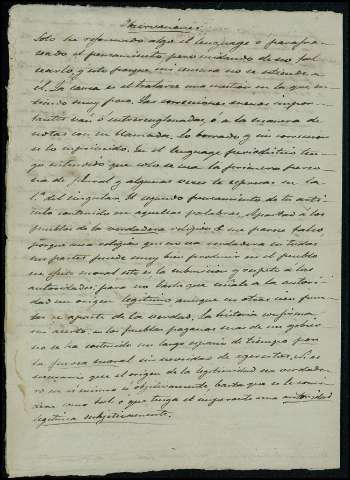 Observaciones
Solo he reformado algo el lenguage o parafra-
seado el pensamiento pero cuidando de no fal-
searlo, y esto porque mi censura no se estiende a
él. La causa es el tratarse una cuestion en la que en-
tiendo muy poco. Las correcciones menos impor-
tantes van ó entrerenglonadas, ó a la manera de
notas con su llamada: lo borrado y sin correccion
es lo suprimido. En el lenguage periodistico ten-
go entendido que solo se usa la primera perso-
na de plural y algunas veces te espresas en la
1ª del singular. El segundo pensamiento de tu artí-
culo contenido en aquellas palabras, Apartad á los
pueblos de la verdadera religion &. me parece falso,
porque una religion que no sea verdadera en todas
sus partes puede muy bien producir en el pueblo
un efecto moral este es la sumision y respeto a las
autoridades, para eso basta que señale a la autori-
dad un origen legitimo aunque en otros cien pun-
tos se aparte de la verdad. La historia confirma
mi aserto. a los pueblos paganos mas de un gobier-
no se ha sostenido un largo espacio de tiempo por
la fuerza moral sin necesidad de egercitos. Ni es
necesario que el origen de la legitimidad sea verdade-
ro en si mismo ú objetivamente basta que se le consi-
dere como tal ó que tenga el imperante una autoridad
legitima subjetivamente.